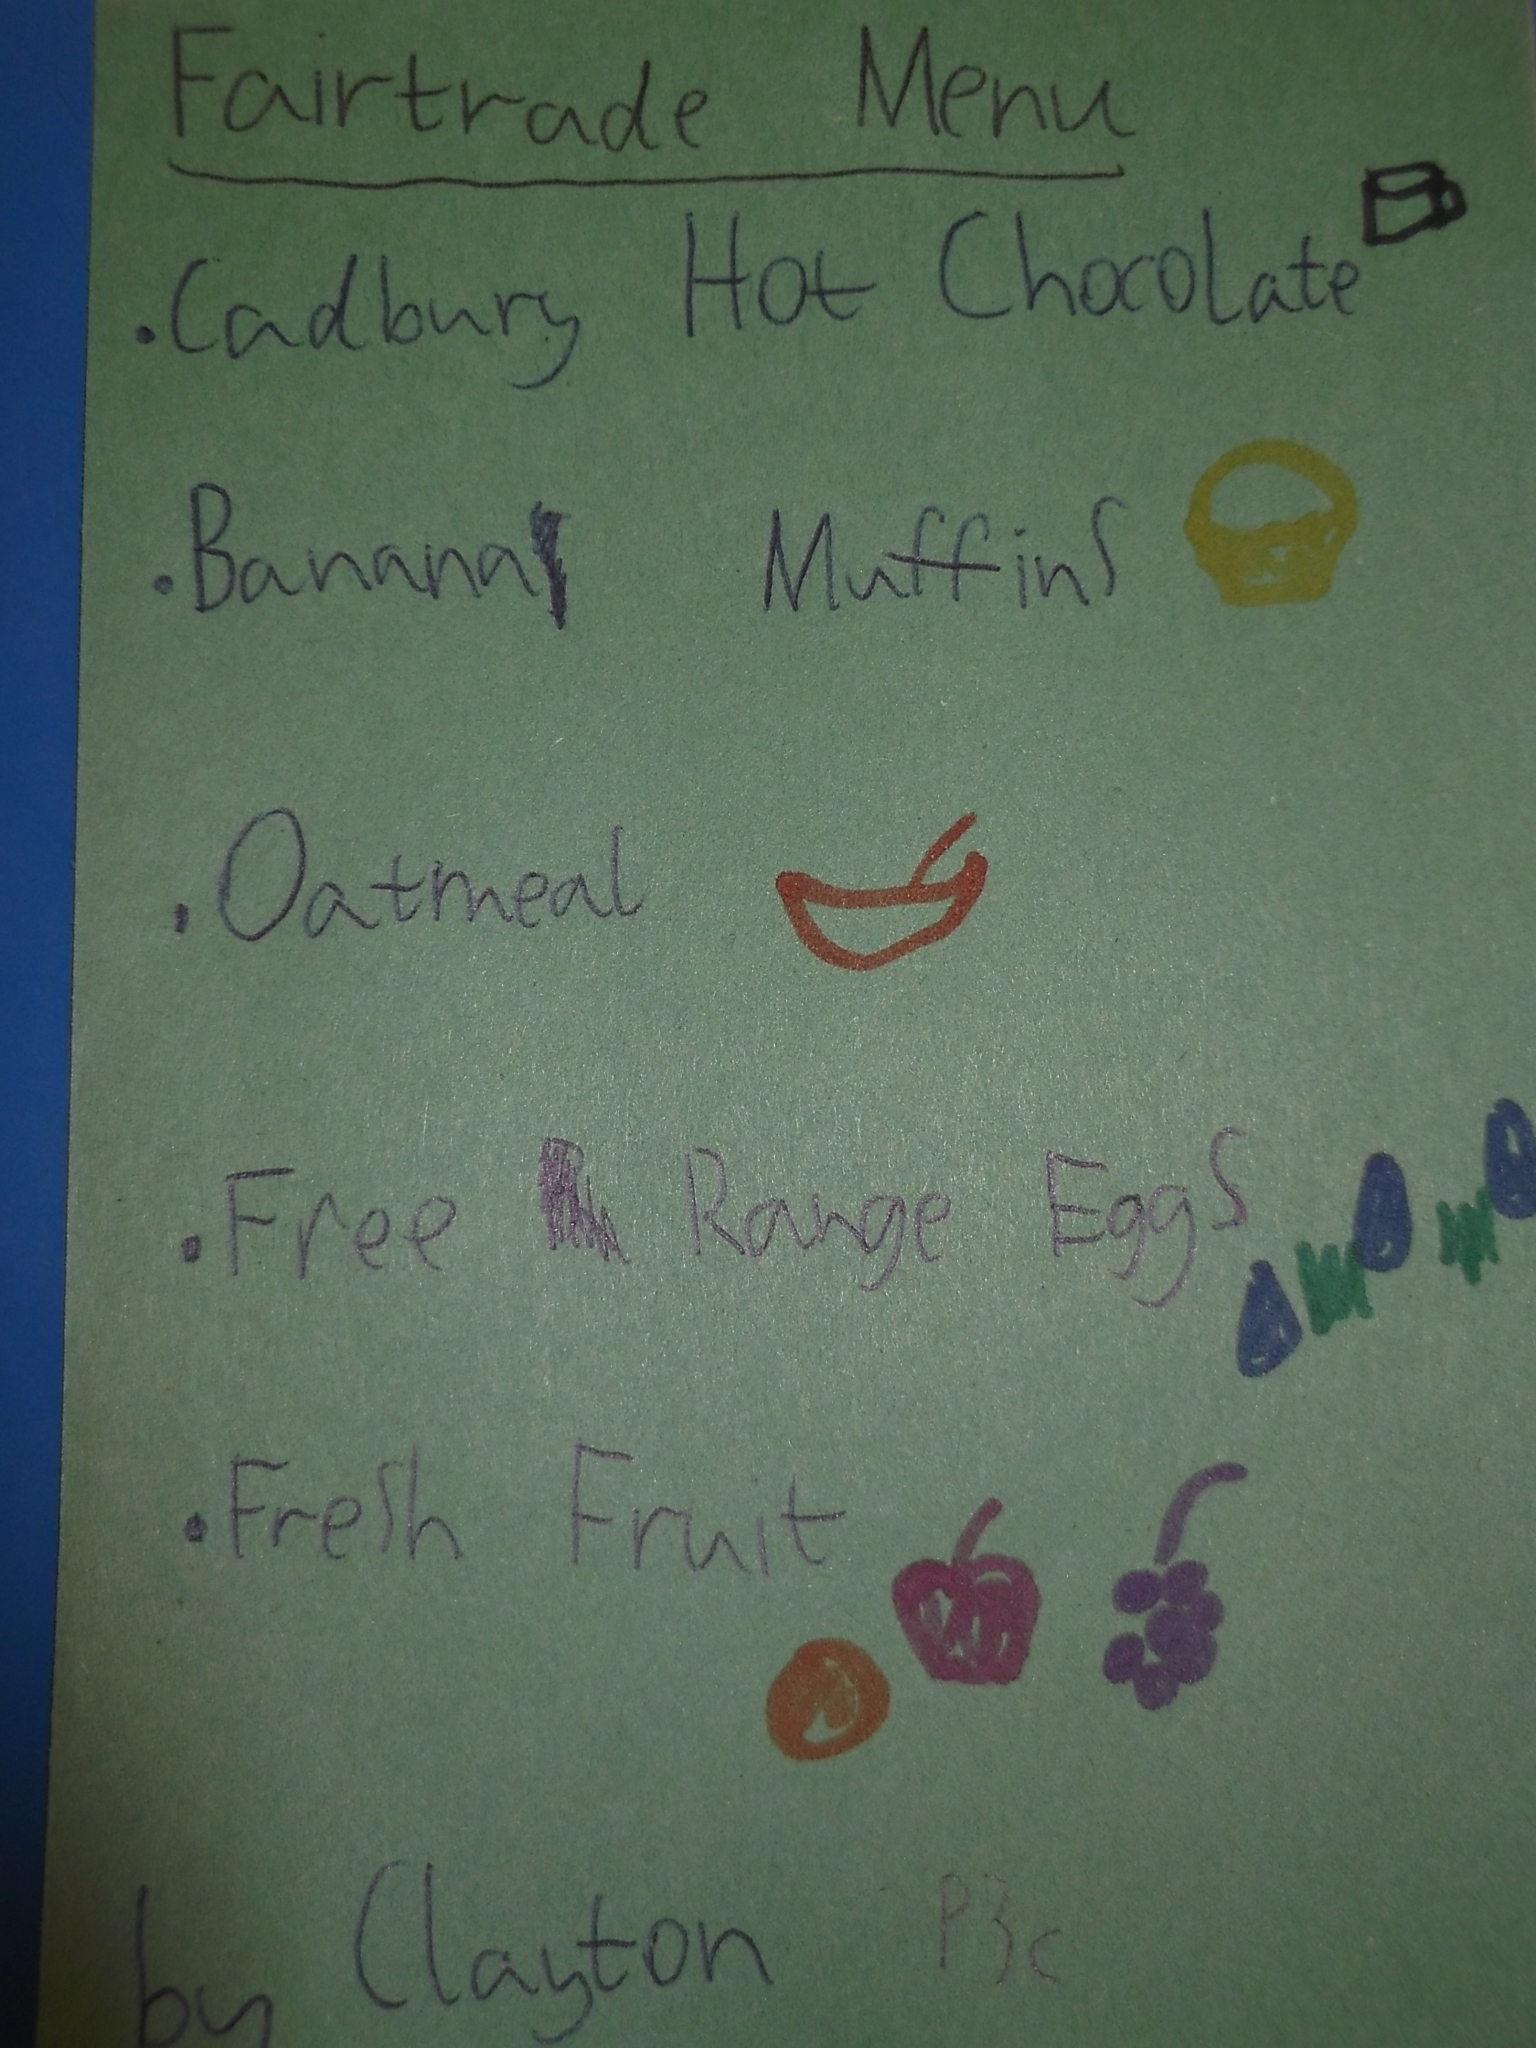 Fairtrade Menu
.Cadbury Hot Chocolate
.Banana Muffins
.Oatmeal
.Free Range Eggs
.Fresh Fruit
by Clayton P3c